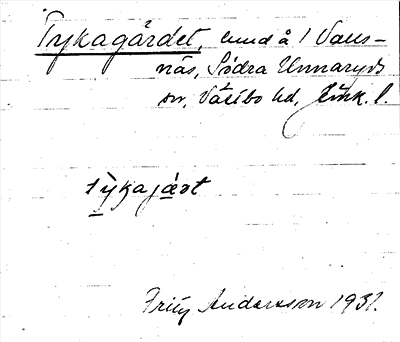 Tykagärdet, lund å 1 Vaus-
näs, Södra Unnaryds
sn, Västbo hd, Jönk. l.
tỳkajäṛt
Fritz Andersson 193